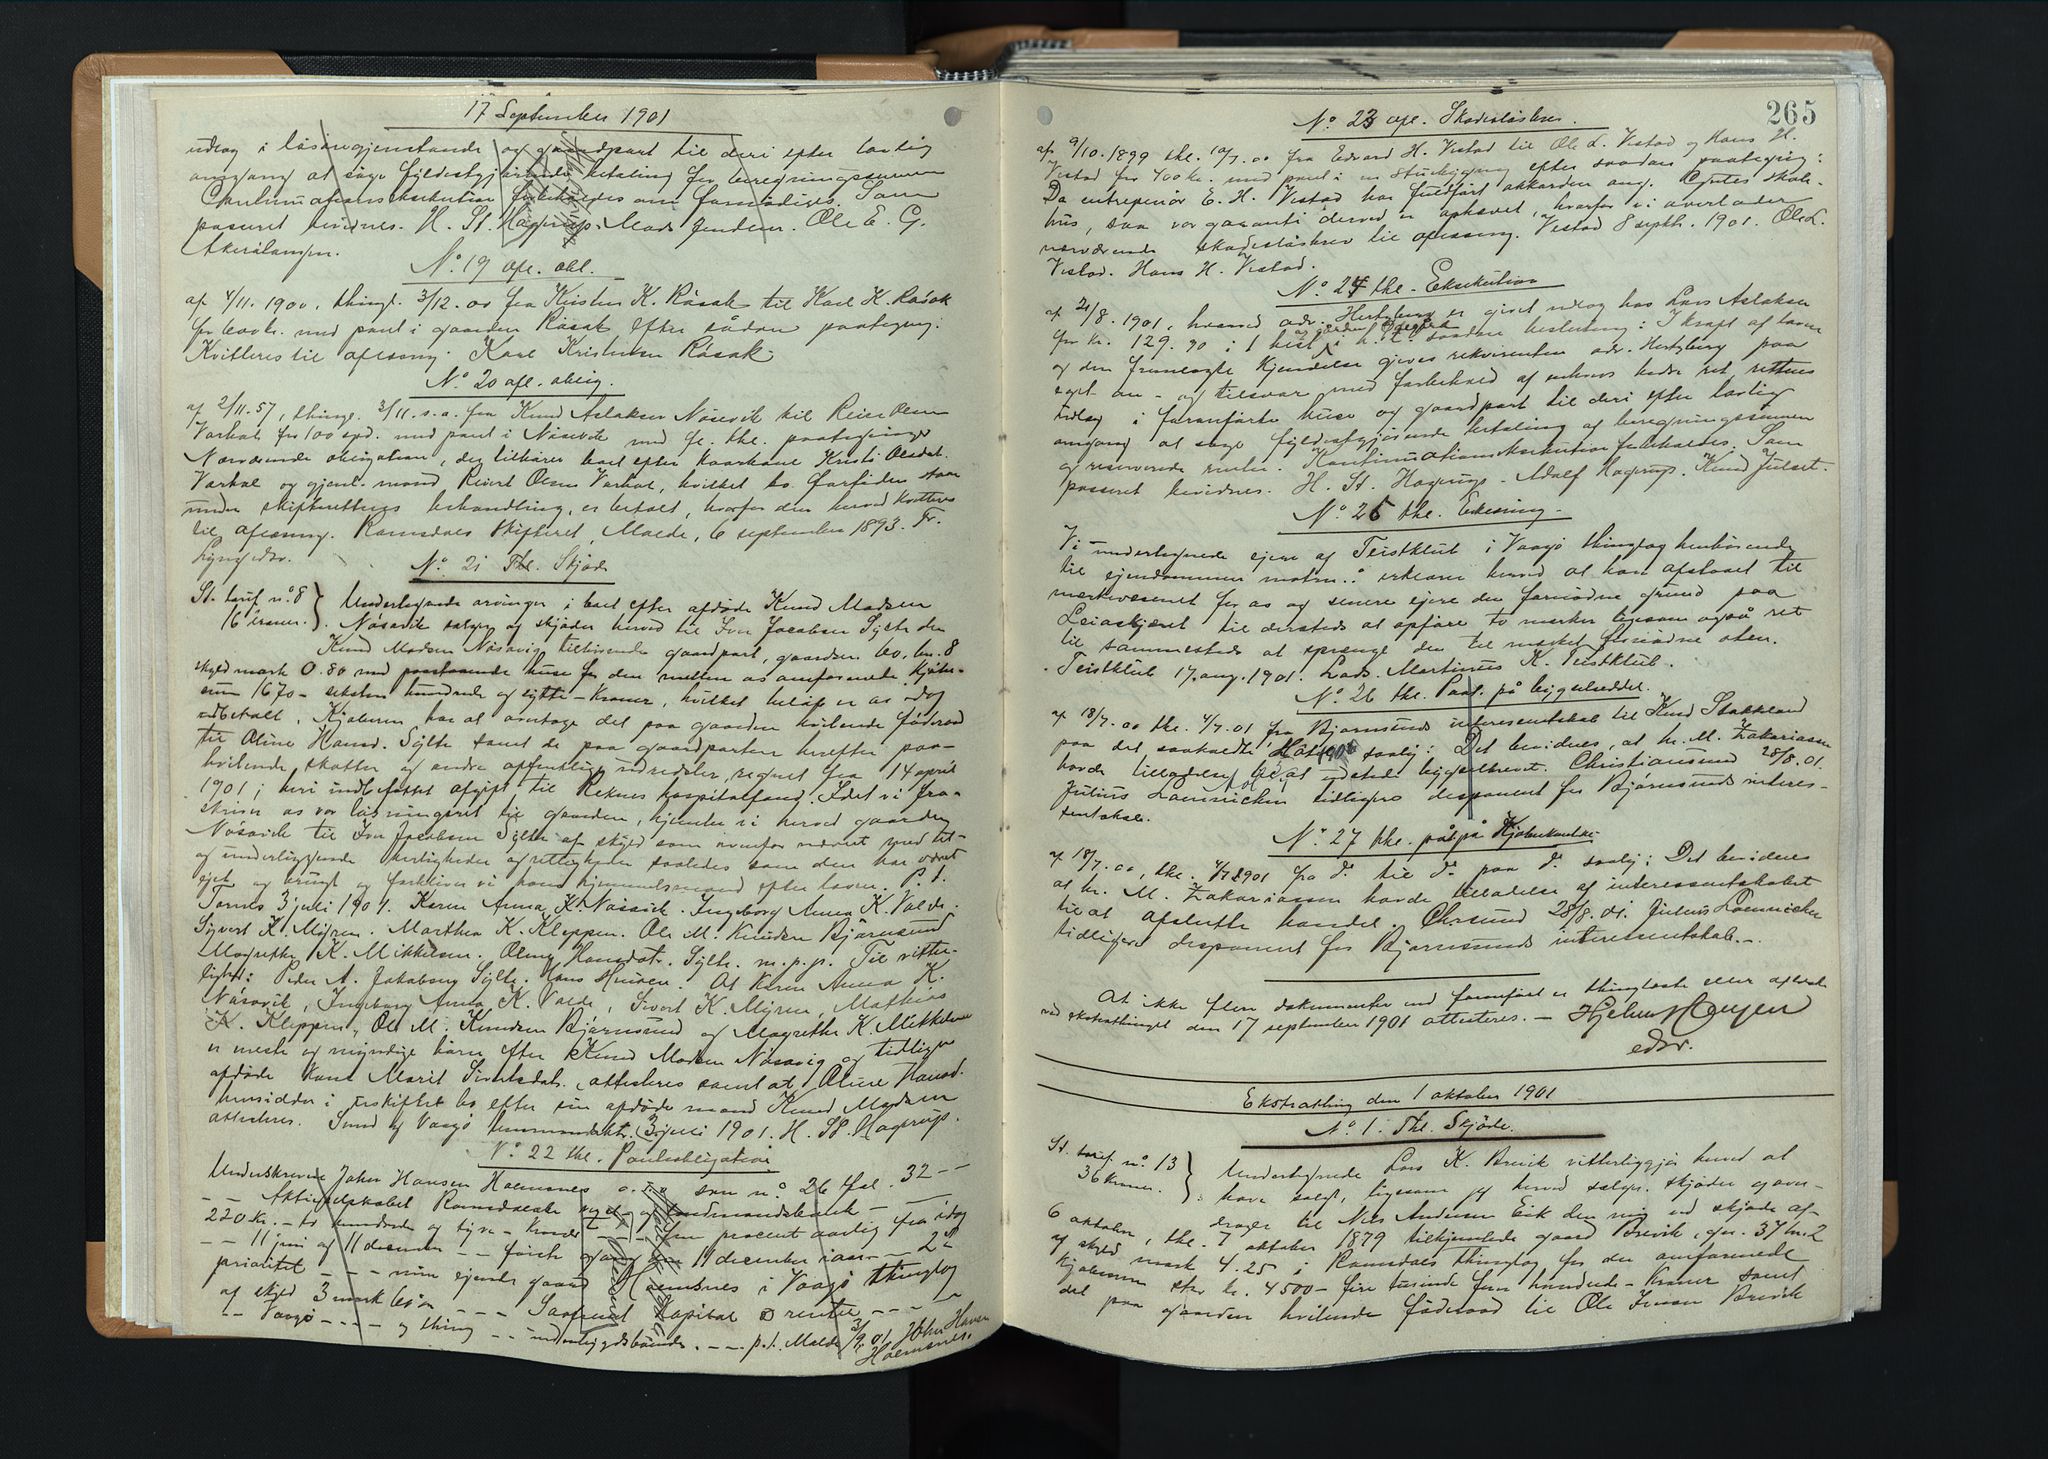 17 September 1901
udlæg i løsøregjenstande og gaardpart til deri efter lovlig
omgang at søge fyldestgjørende betaling for beregningssummen
Continuationsexekution forbeholdes om fornødiges. Saa
passeret bevidnes. H. St. Hagerup. Mads Jendem. Ole E. G.
Akerslangen.
No. 19 afl. obl.
af 4/11. 1900, thingl. 3/12. 00 fra Kristen K. Råsok til Karl K. Råsok
for kr. med pant i gaarden Råsok efter sådan paategng:
Kvitteres til aflæsng. Karl Kristensen Råsok
No. 20 afl. oblig.
af 2/11. 57, thingl. 3/11. s.a. fra Knud Aslaksen Nåsevik til Reier Olsen
Varhol for 100 spd. med pant i Nåsevik med fl. thl. paategninger
Nærværende obligation, der tilhører boet efter Kaarkone Kristi Olsdat.
Varhol og gjenl. mand Reiert Olsen Varhol, hvilket bo forhåden staar
under skifterettens behandling, er betalt, hvorfor den herved kvitteres
til aflæsning. Romsdals skifteret, Molde, 6 september 1893. Fr.
Lyng edsv.
No. 21 Thl. Skjøde
St. tarif no. 8 } Undertegnede arvinger i boet efter afdøde Knud Madsen
16 kroner. } Nåsevik sælger og skjøder herved til Iver Jacobsen Sylte den
Knud Madsen Nåsevig tilhørende gaardpart, gaardsn. 60, bn. 8
skyld mark 0.80 med paastaaende huse for den mellem os omforenede kjøbe-
sum 1670 - seksten hundrede og sytti - Kroner, hvilket beløb er os idag
indbetalt. Kjøberen har at overtage det paa gaarden hvilende føderaad
til Oline Hansd. Sylte samt de paa gaardparten herefter paa-
hvilende skatter og andre offentlige udredsler, regnet fra 14 april
1901; heri indbefattet afgift til Reknes hospitalsfond. Idet vi fra-
skriver os vor løsningsret til gaarden, hjemler vi herved gaarden
Nåsevik til Iver Jacobsen Sylte af skyld som ovenfor nævnt med til-
og underliggende herligheder og rettigheder saaledes som den har været
ejet og brugt og forbliver vi hans hjemmelsmænd efter loven. P. t.
Tornes 3 juli 1901. Karen Anna K. Nåsevik. Ingeborg Anna K. Valde.
Sivert K. Myren. Marthea K. Kleppen. Ole M. Knudsen Bjørnsund
Magrethe K. Mikkelsen. Oline Hansdat. Sylte. m.p.p. Til vitter-
lighed: Peder A. Jakobsen Sylte. Hans Husøen. At Karen Anna K.
Nåsevik, Ingeborg Anna K. Valde, Sivert K. Myren, Mathias
K. Kleppen, Ole M. Knudsen Bjørnsund og Magrethe K. Mikkelsen
er næste og myndige børn efter Knud Madsen Nåsevig og tidligere
afdøde kone Marit Sivertsdat. attesteres samt at Oline Hansd.
hensidder i uskiftet bo efter sin afdøde mand Knud Madsen
attesteres. Sund af Vaagø lensmandsktr. 3 juli 1901. H. St. Hagerup.
No. 22 thl. Pantobligation
Underskrevne John Hansen Holmsnes o.s.v. som no. 26 fol. 32 - -
- - Aktieselskabet Romsdalske og Landmandsbank -
220 kr. - to hundrede og tyve - Kroner - - fem procent aarlig fra idag
- - 11 juni og 11 december - - første gang 11 december iaar - - 2'
prioritet - - - min ejende gaard Holmsnes i Vaagø thinglag
af skyld 3 mark - - - Saafremt kapital & renter - - -
- - Vaagø - - - og thing - - indenbygdsboende. - - p.t. Molde 3/9. 01. John Hansen
Holmsnes.
265
No. 23 afl. Skadesløsbrev.
af 9/10. 1899 thl. 10/7. 00 fra Edvard H. Vestad til Ole L. Vestad og Hans H.
Vestad for 400 kr. med pant i en stuebygning efter saadan paategng:
Da entreprenør E. H. Vestad har fuldført akkorden ang. skole-
hus, saa vor garanti derved er ophævet, hvorfor vi overlader
nærværende skadesløsbrev til aflæsning. Vestad 8 septbr. 1901. Ole L.
Vestad. Hans H. Vestad.
No. 24 thl. Eksekution
af 21/8. 1901, hvorved adv. Hertzberg er givet udlæg hos Lars Aslaksen
for kr. 129. 90 i 1 hest saadan beslutning: I kraft af loven
og den fremlagte kjendelse gives rekvirenten adv. Hertzberg paa
eget an- og tilsvar med forbehold af enhvers bedre ret, rettens
udlæg i foranførte huse og gaardpart til deri efter lovlig
omgang at søge fyldestgjørende betaling af beregningssummen
og reserverede renter. Kontinuationseksekution forbeholdes. Saa
passeret bevidnes. H. St. Hagerup. Adolf Hagerup. Knud Julset.
No. 25 thl. Erklæring.
Vi undertegnede ejere af Teistklub i Vaagø thinglag henhørende
til ejendommen matrn. .. erklærer herved at han afstaaet til
merkevæsenet for os og senere ejere den fornødne grund paa
Leiaskjæret til dersteds at opføre to merker ligesom også ret
til sammesteds at sprænge den til merket fornødne sten.
Teistklub 17. aug. 1901. Lads. Martinus K. Teistklub.
No. 26 thl. Paat. på bygselseddel.
af 18/7. 00 thl. 4/7. 01 fra Bjørnsunds interessentskab til Knud Stokkland
paa det saakaldte saalyd: Det bevidnes, at hr. M. Zakariassen
havde tilladelse til at udstede bygselbrevet. Christianssund 28/8. 01.
Julius Loennechen tidligere disponent for Bjørnsunds interes-
sentskab.
No. 27 thl. påt. på Kjøbekontr.
af 18/7. 00, thl. 4/7 1901 fra do. til do. paa do. saalyd: Det bevidnes
at hr. M. Zakariassen havde tilladelse af interessentskabet
til at afslutte handel. Chrsund 28/8. 01. Julius Loennechen
tidligere disponent for Bjørnsunds interessentskab. -
At ikke flere dokumenter end foranført er thinglæste eller aflæste
ved ekstrathinget den 17 september 1901 attesteres. -
edsv.
Ekstrathing den 1 oktober 1901
No. 1. Thl. Skjøde.
St. tarif no. 13 } Undertegnede Lars K. Brevik vitterliggjør herved at
36 kroner. } have solgt, ligesom jeg herved sælger, skjøder og over-
drager til Nils Andersen Eik den mig ved skjøde af
6 oktober, thl. 7 oktober 1879 tilhjemlede gaard Brevik, gn. 37 bn. 2
af skyld mark 4.25 i Romsdals thinglag for den omforenede
kjøbesum stor kr. 4500 - fire tusinde fem hundrede - Kroner samt
det paa gaarden hvilende føderaad til Ole Iversen Brevik